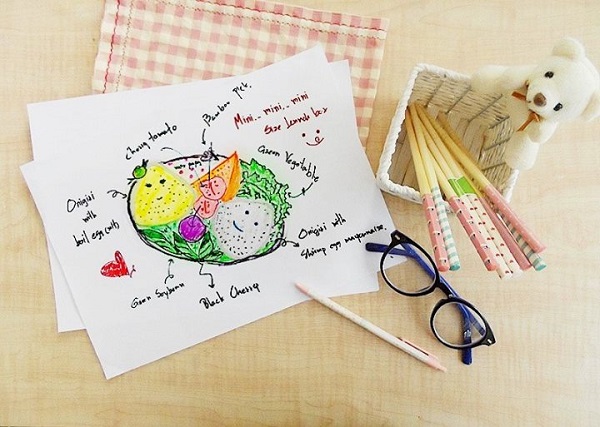 Bamboo pick.
Mini.. mini.. mini
size lunch box
Choug tomato
Green Vegetable
Onigiri
with
boil egg (with)
Onigiri with
Shrimp egg mayonnaise.
Green Soybean
Black Cherry